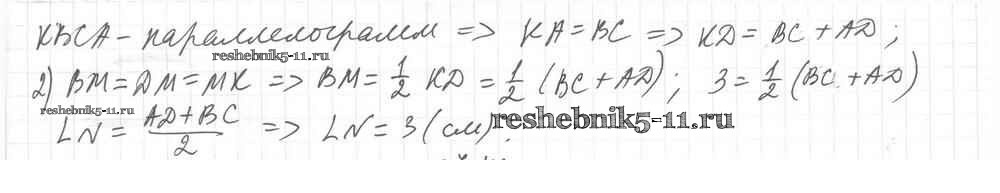 КВСА - параллелограмм => KA = BC => KD = BC + AD;
reshebnik5-11.ru
2) BM = DM = MK => BM = 1/2 KD = 1/2 (BC + AD); 3 = 1/2 (BC + AD)
reshebnik5-11.ru
LN = AD + BC / 2 => LN = 3 (см).
reshebnik5-11.ru